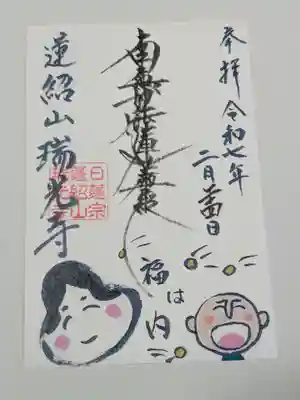 奉拝 令和七年
二月
南無妙法蓮華経
蓮紹山瑞光寺
日蓮宗
蓮紹山
瑞光寺
福は内